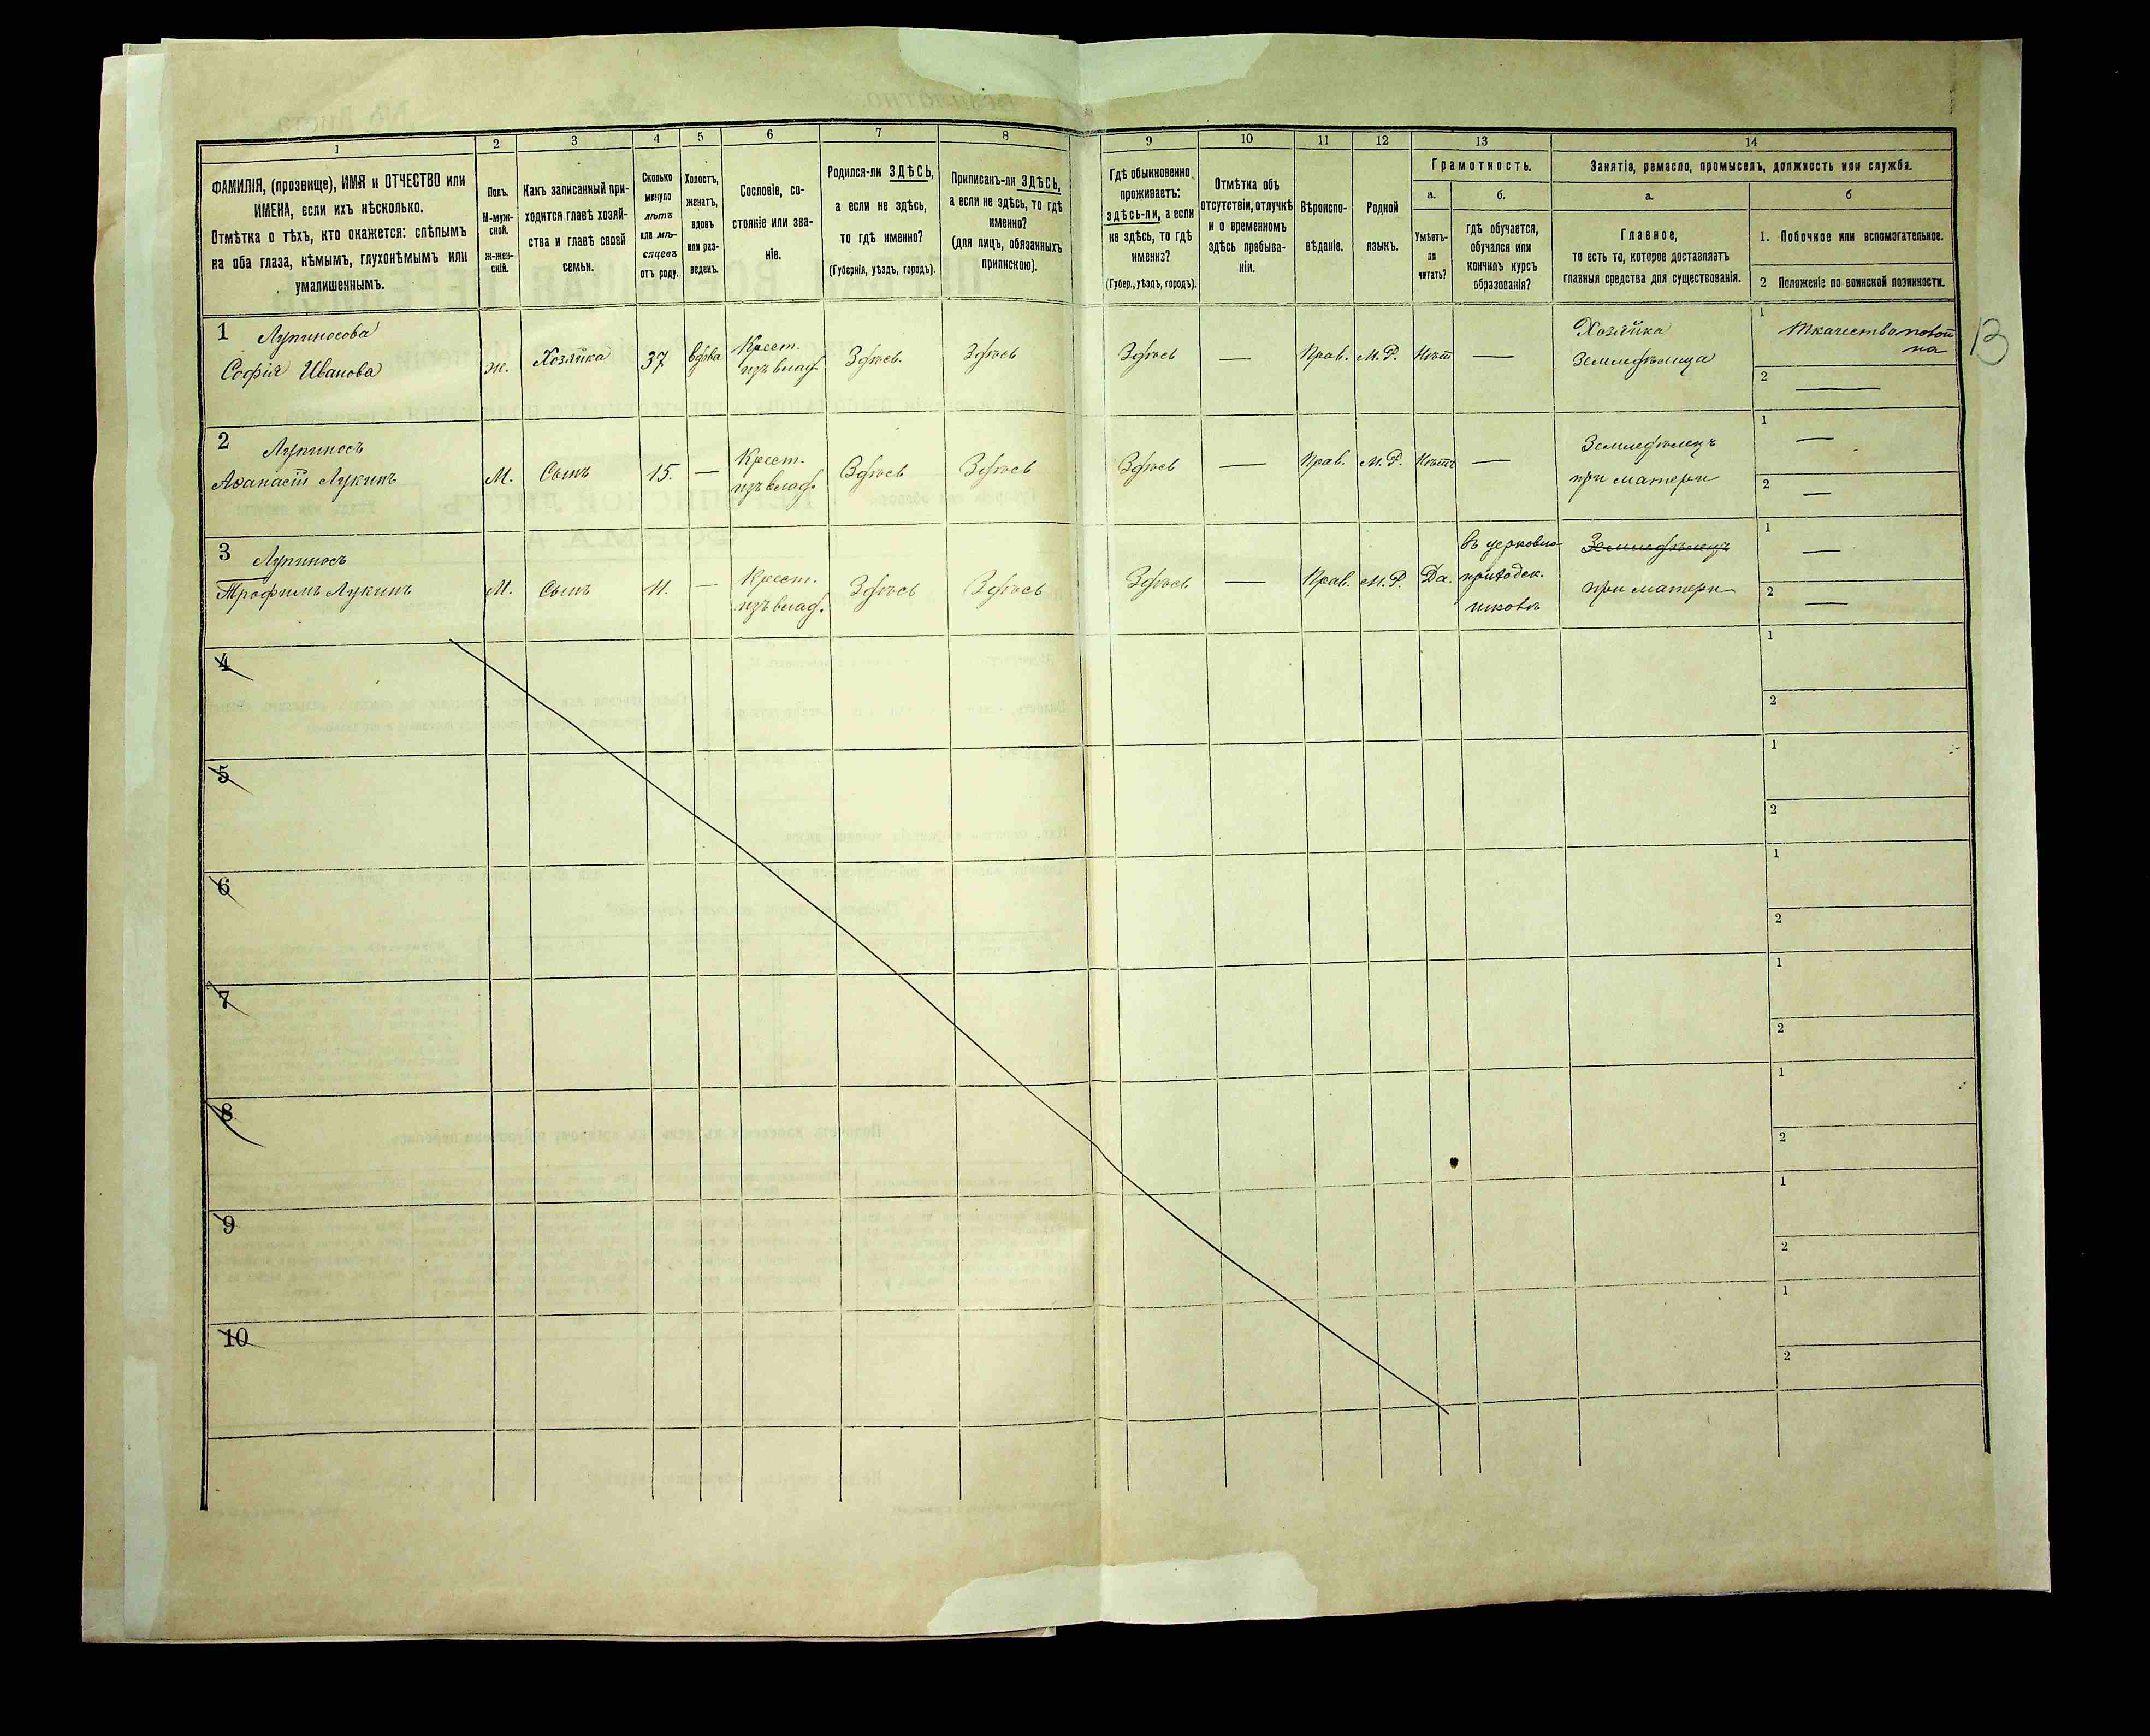 1
2
3
4
5
6
7
8
9
10
11
12
13
14
ФАМИЛІЯ, (прозвище), ИМЯ и ОТЧЕСТВО или
ИМЕНА, если ихъ нѣсколько.
Отмѣтка о тѣхъ, кто окажется: слѣпымъ
на оба глаза, нѣмымъ, глухонѣмымъ или
умалишеннымъ.
Полъ.
М-муж-
ской.
Ж-жен-
скій.
Какъ записанный при-
ходится главѣ хозяй-
ства и главѣ своей
семьи.
Сколько
минуло
лѣтъ
или мѣ-
сяцевъ
отъ роду.
Холостъ,
женатъ,
вдовъ
или раз-
веденъ.
Сословіе, со-
стояніе или зва-
ніе.
Родился-ли ЗДѢСЬ,
а если не здѣсь,
то гдѣ именно?
(Губернія, уѣздъ, городъ).
Приписанъ-ли ЗДѢСЬ,
а если не здѣсь, то гдѣ
именно?
(для лицъ, обязанныхъ
припискою).
Гдѣ обыкновенно
проживаетъ:
здѣсь-ли, а если
не здѣсь, то гдѣ
именно?
(Губер., уѣздъ, городъ).
Отмѣтка объ
отсутствіи, отлучкѣ
и о временномъ
здѣсь пребыва-
ніи.
Вѣроиспо-
вѣданіе.
Родной
языкъ.
Грамотность.
а.
Умѣетъ-
ли
читать?
б.
гдѣ обучается,
обучался или
кончилъ курсъ
образованія?
Занятія, ремесло, промыселъ, должность или служба.
а.
Главное,
то есть то, которое доставляетъ
главныя средства для существованія.
б
1. Побочное или вспомогательное.
2 Положеніе по воинской повинности.
1 Лупиносова
Софія Иванова
ж.
Хозяйка
37
вдова
Крест.
изъ влад.
Здѣсь
Здѣсь
Здѣсь
—
Прав.
М.Р.
Нѣтъ
—
Хозяйка
Земледѣлица
1 Ткачество полот
на
2 —
13
2 Лупиносъ
Аѳанасій Лукинъ
М.
Сынъ
15.
—
Крест.
изъ влад.
Здѣсь
Здѣсь
Здѣсь
—
Прав.
М.Р.
Нѣтъ
—
Земледѣлецъ
при матери
1 —
2 —
3 Лупиносъ
Трофимъ Лукинъ
М.
Сынъ
11.
—
Крест.
изъ влад.
Здѣсь
Здѣсь
Здѣсь
—
Прав.
М.Р.
Да.
въ церковно-
приходск.
школѣ
Земледѣлецъ
при матери
1 —
2 —
4
1
2
5
1
2
6
1
2
7
1
2
8
1
2
9
1
2
10
1
2